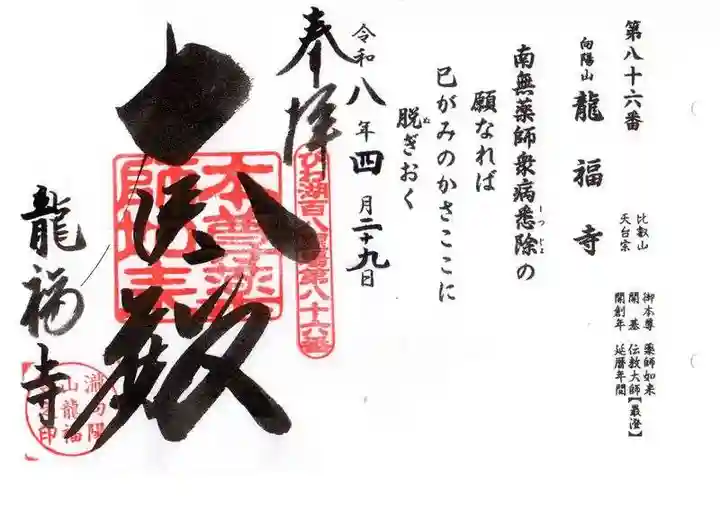 第八十六番
向陽山 龍福寺
比叡山
天台宗
御本尊 薬師如来
開基 伝教大師【最澄】
開創年 延暦年間
南無薬師衆病悉除の
しつじよ
願なれば
巳がみのかさここに
脱ぎおく
ぬ
令和八年四月二十九日
奉拝
びわ湖百八霊場第八十六番
本尊薬師如来
龍福寺